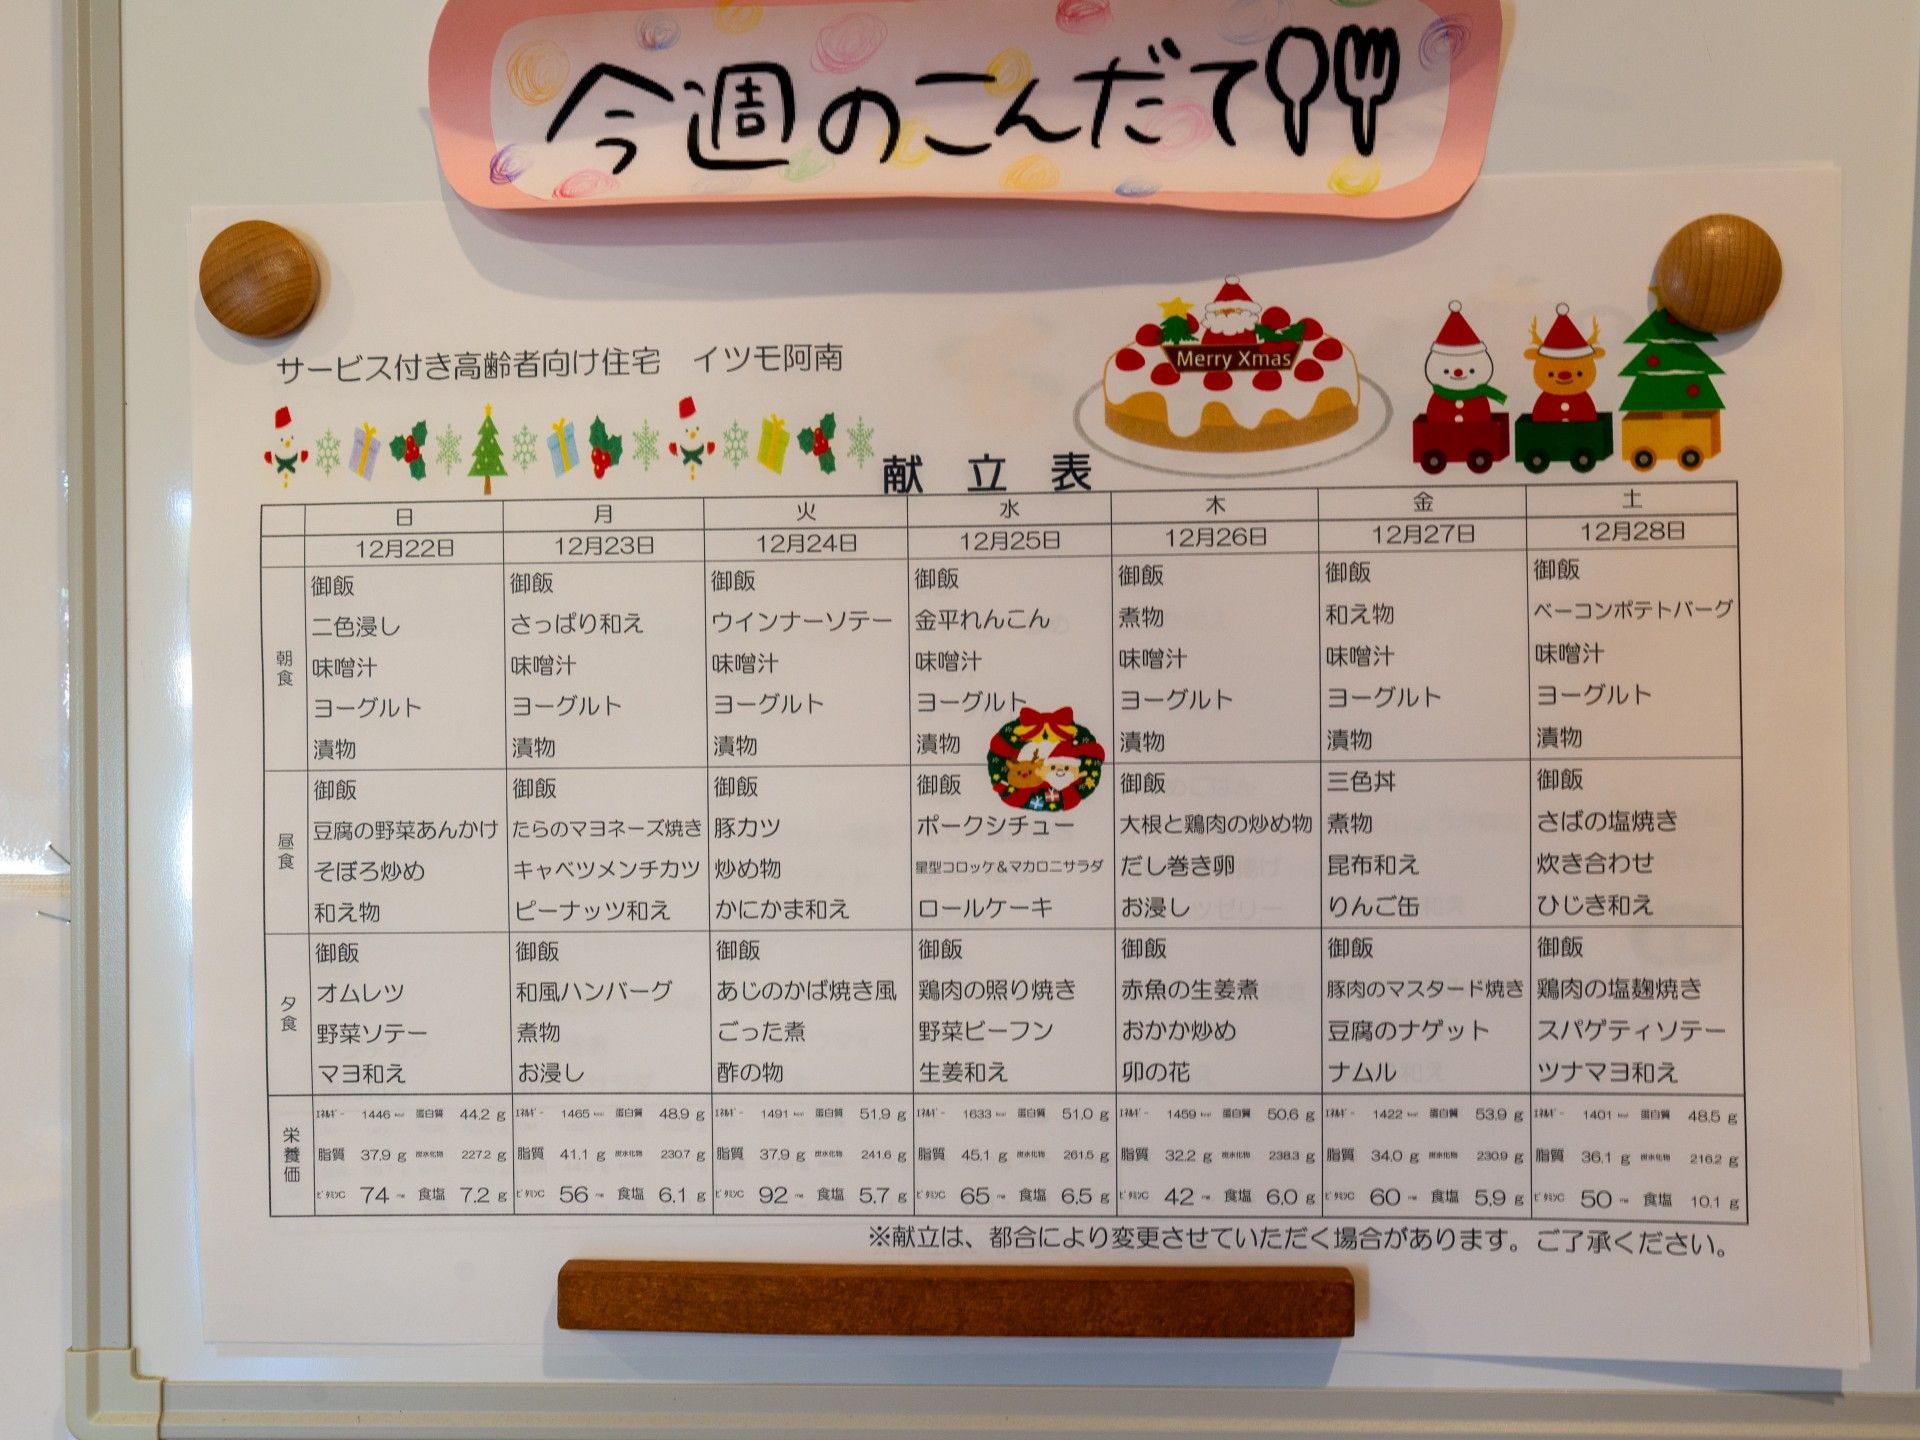 今週のこんだて
サービス付き高齢者向け住宅 イツモ阿南
Merry Xmas
献立表
日 月 火 水 木 金 土
12月22日 12月23日 12月24日 12月25日 12月26日 12月27日 12月28日
朝食
御飯 御飯 御飯 御飯 御飯 御飯 御飯
二色浸し さっぱり和え ウインナーソテー 金平れんこん 煮物 和え物 ベーコンポテトバーグ
味噌汁 味噌汁 味噌汁 味噌汁 味噌汁 味噌汁 味噌汁
ヨーグルト ヨーグルト ヨーグルト ヨーグルト ヨーグルト ヨーグルト ヨーグルト
漬物 漬物 漬物 漬物 漬物 漬物 漬物
昼食
御飯 御飯 御飯 御飯 御飯 三色丼 御飯
豆腐の野菜あんかけ たらのマヨネーズ焼き 豚カツ ポークシチュー 大根と鶏肉の炒め物 煮物 さばの塩焼き
そぼろ炒め キャベツメンチカツ 炒め物 星型コロッケ&マカロニサラダ だし巻き卵 昆布和え 炊き合わせ
和え物 ピーナッツ和え かにかま和え ロールケーキ お浸し りんご缶 ひじき和え
夕食
御飯 御飯 御飯 御飯 御飯 御飯 御飯
オムレツ 和風ハンバーグ あじのかば焼き風 鶏肉の照り焼き 赤魚の生姜煮 豚肉のマスタード焼き 鶏肉の塩麹焼き
野菜ソテー 煮物 ごった煮 野菜ビーフン おかか炒め 豆腐のナゲット スパゲティソテー
マヨ和え お浸し 酢の物 生姜和え 卯の花 ナムル ツナマヨ和え
栄養価
ｴﾈﾙｷﾞｰ 1446 kcal 蛋白質 44.2 g ｴﾈﾙｷﾞｰ 1465 kcal 蛋白質 48.9 g ｴﾈﾙｷﾞｰ 1491 kcal 蛋白質 51.9 g ｴﾈﾙｷﾞｰ 1633 kcal 蛋白質 51.0 g ｴﾈﾙｷﾞｰ 1459 kcal 蛋白質 50.6 g ｴﾈﾙｷﾞｰ 1422 kcal 蛋白質 53.9 g ｴﾈﾙｷﾞｰ 1401 kcal 蛋白質 48.5 g
脂質 37.9 g 炭水化物 227.2 g 脂質 41.1 g 炭水化物 230.7 g 脂質 37.9 g 炭水化物 241.6 g 脂質 45.1 g 炭水化物 261.5 g 脂質 32.2 g 炭水化物 238.3 g 脂質 34.0 g 炭水化物 230.9 g 脂質 36.1 g 炭水化物 216.2 g
ﾋﾞﾀﾐﾝC 74 mg 食塩 7.2 g ﾋﾞﾀﾐﾝC 56 mg 食塩 6.1 g ﾋﾞﾀﾐﾝC 92 mg 食塩 5.7 g ﾋﾞﾀﾐﾝC 65 mg 食塩 6.5 g ﾋﾞﾀﾐﾝC 42 mg 食塩 6.0 g ﾋﾞﾀﾐﾝC 60 mg 食塩 5.9 g ﾋﾞﾀﾐﾝC 50 mg 食塩 10.1 g
※献立は、都合により変更させていただく場合があります。ご了承ください。